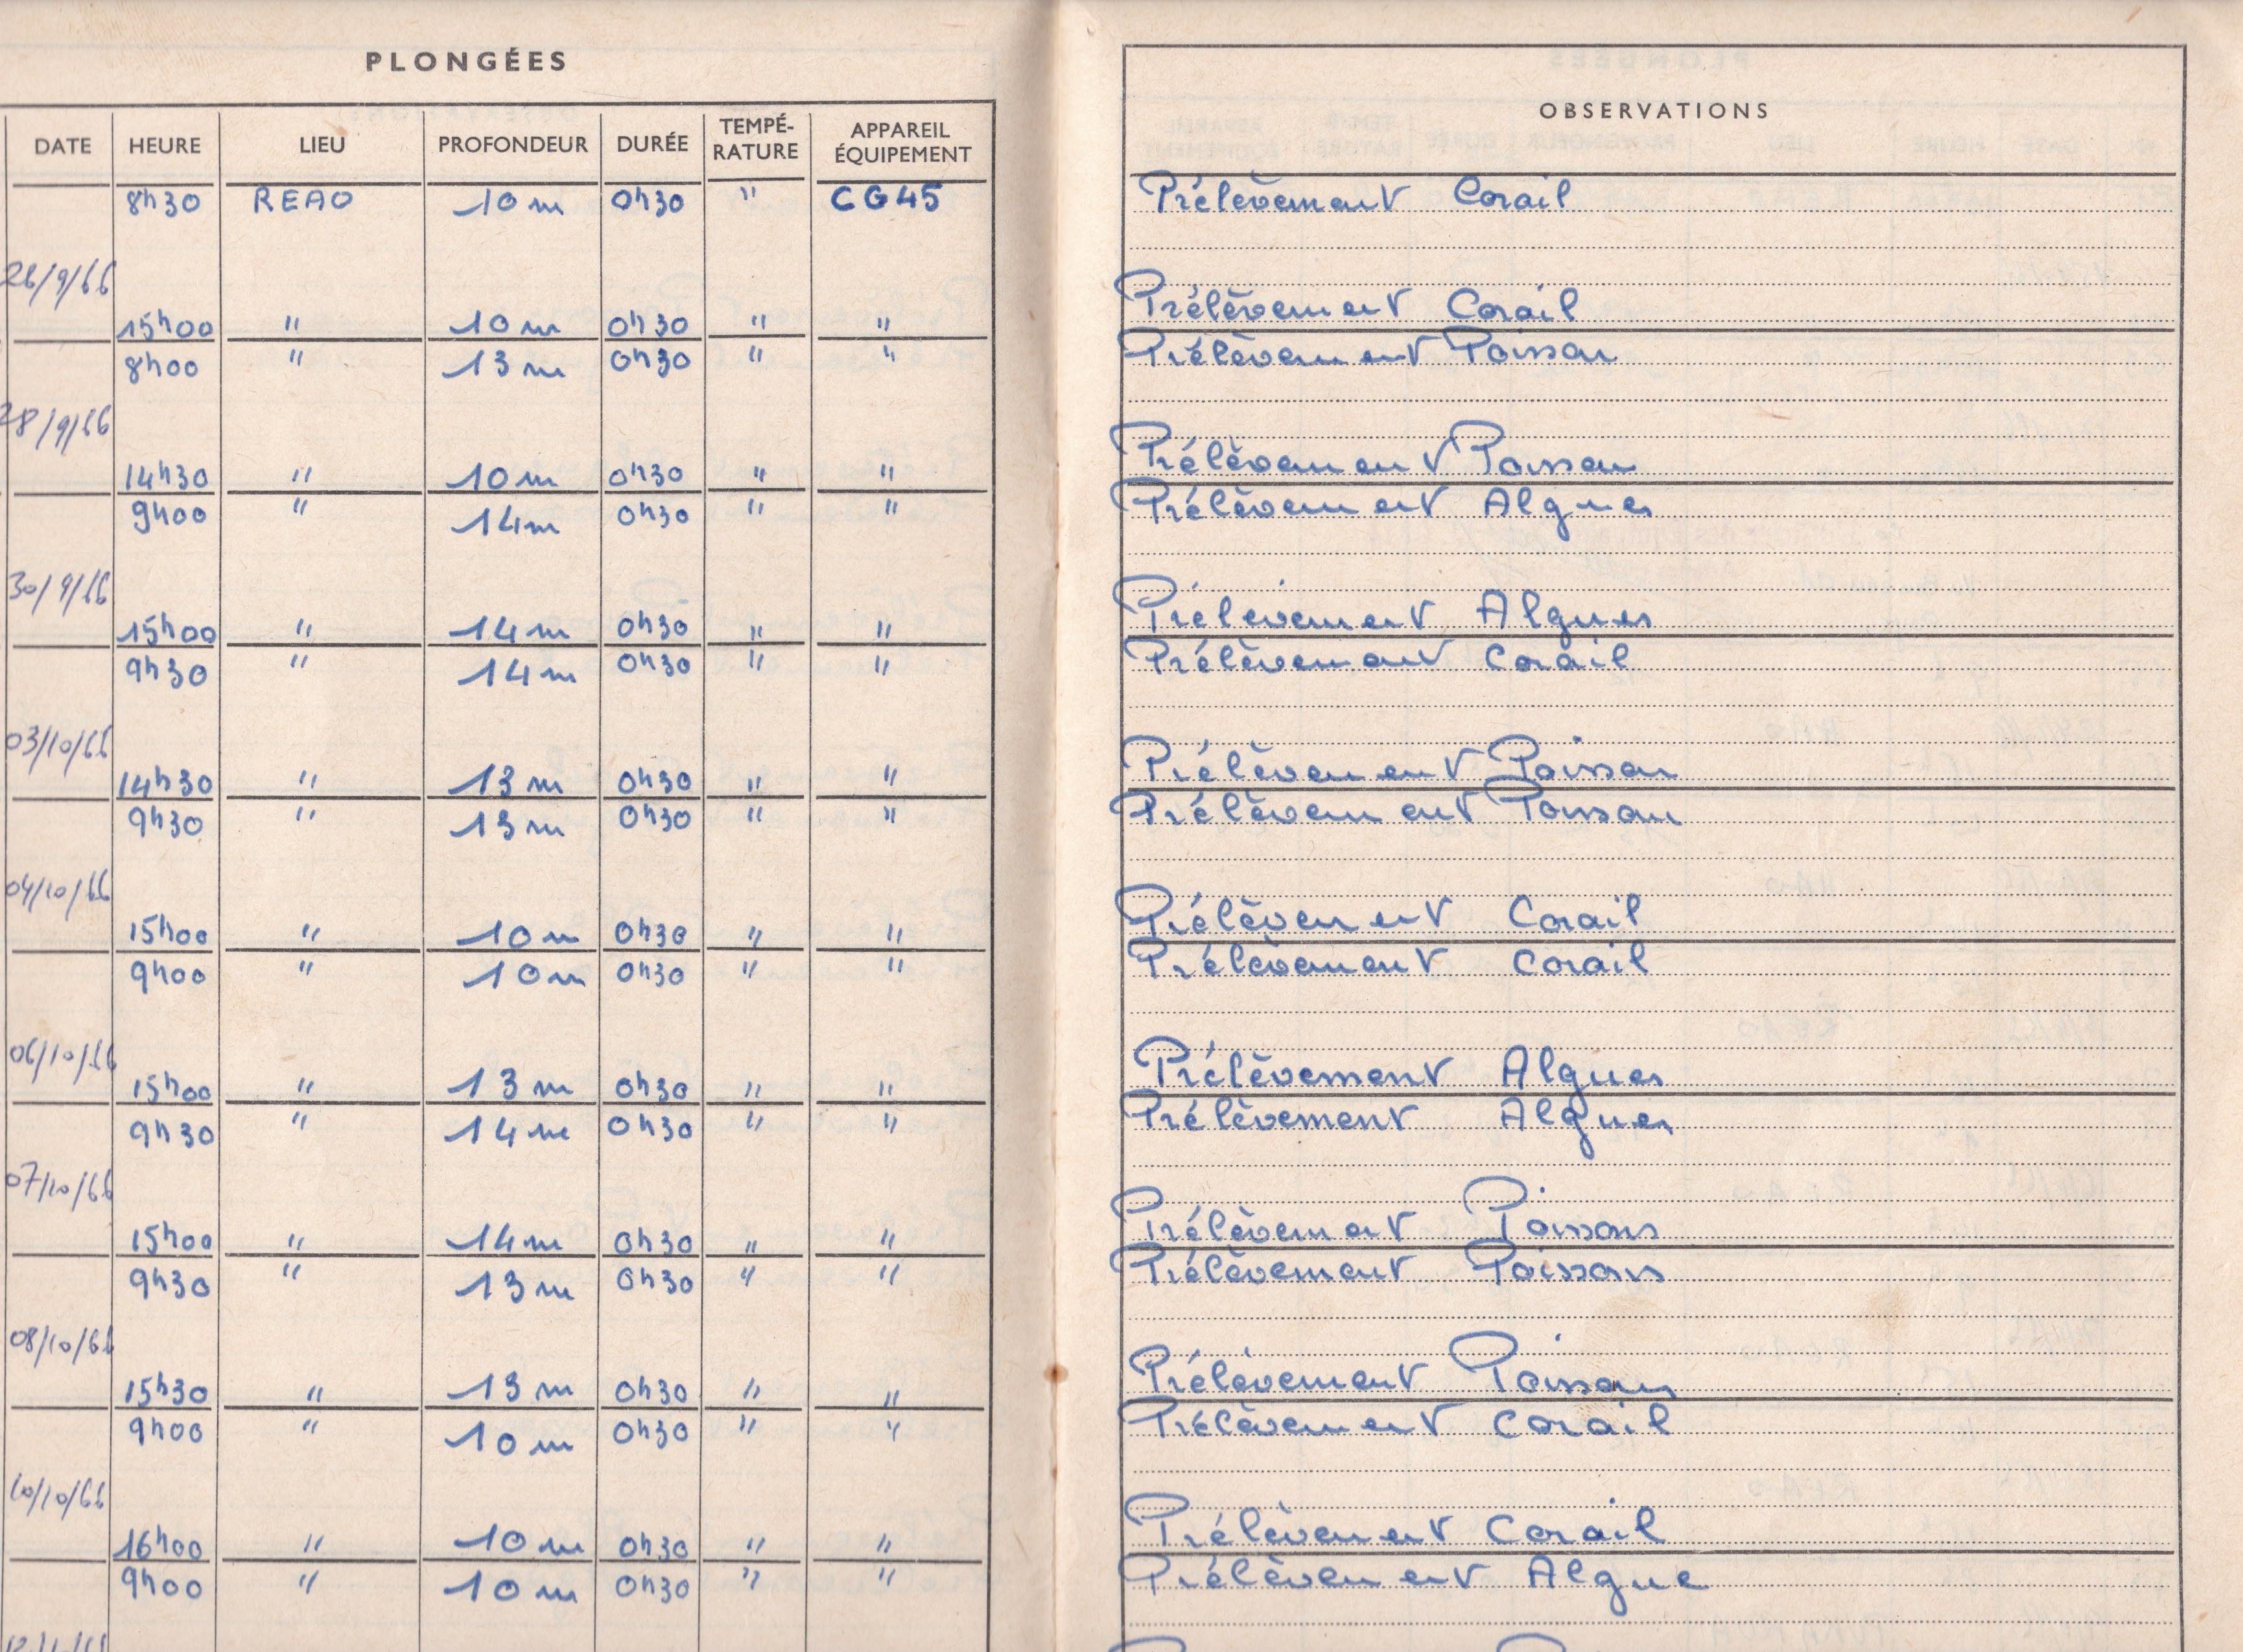 PLONGÉES
OBSERVATIONS
DATE HEURE LIEU PROFONDEUR DURÉE TEMPÉ-RATURE APPAREIL ÉQUIPEMENT
8h30 REAO 10 m 0h30 " CG45 Prélèvement Corail
26/9/66
15h00 " 10 m 0h30 " " Prélèvement Corail
8h00 " 13 m 0h30 " " Prélèvement Poisson
28/9/66
14h30 " 10 m 0h30 " " Prélèvement Poisson
9h00 " 14 m 0h30 " " Prélèvement Algues
30/9/66
15h00 " 14 m 0h30 " " Prélèvement Algues
9h30 " 14 m 0h30 " " Prélèvement Corail
03/10/66
14h30 " 13 m 0h30 " " Prélèvement Poisson
9h30 " 13 m 0h30 " " Prélèvement Poisson
04/10/66
15h00 " 10 m 0h30 " " Prélèvement Corail
9h00 " 10 m 0h30 " " Prélèvement Corail
06/10/66
15h00 " 13 m 0h30 " " Prélèvement Algues
9h30 " 14 m 0h30 " " Prélèvement Algues
07/10/66
15h00 " 14 m 0h30 " " Prélèvement Poissons
9h30 " 13 m 0h30 " " Prélèvement Poissons
08/10/66
15h30 " 13 m 0h30 " " Prélèvement Poissons
9h00 " 10 m 0h30 " " Prélèvement Corail
10/10/66
16h00 " 10 m 0h30 " " Prélèvement Corail
9h00 " 10 m 0h30 " " Prélèvement Algue